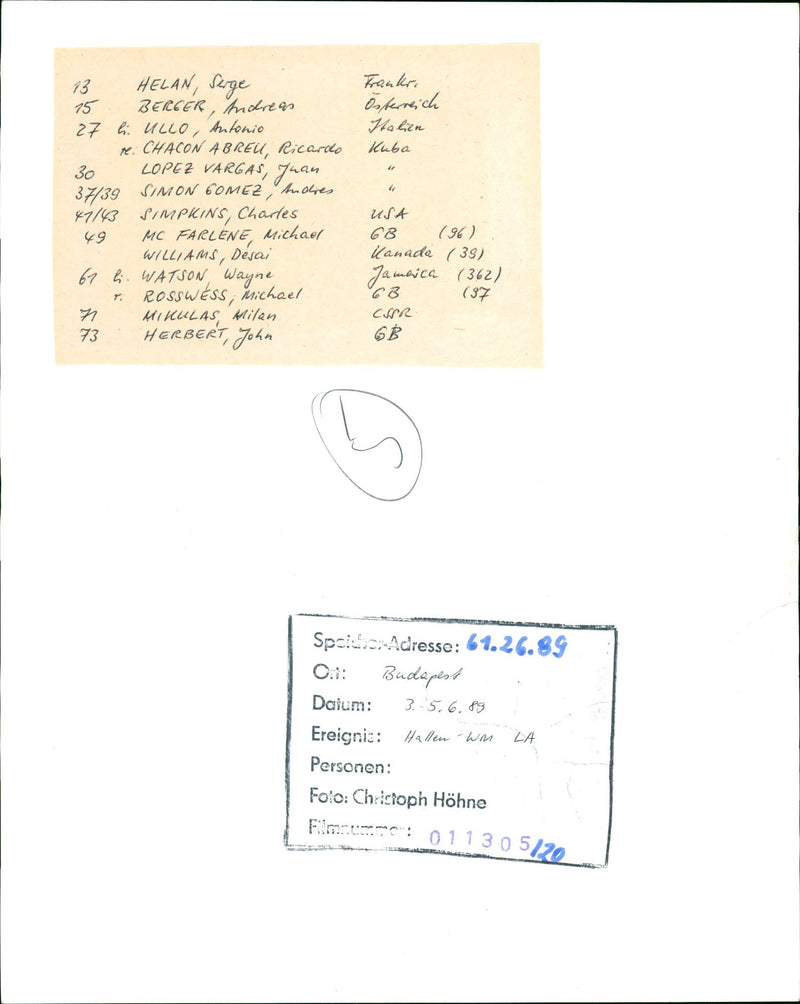 13 HELAN, Serge Frankr.
15 BERGER, Andreas Österreich
27 li. ULLO, Antonio Italien
re. CHACON ABREU, Ricardo Kuba
30 LOPEZ VARGAS, Juan "
37/39 SIMON GOMEZ, Andres "
41/43 SIMPKINS, Charles USA
49 MC FARLENE, Michael GB (96)
WILLIAMS, Desai Kanada (39)
61 li. WATSON Wayne Jamaica (362)
r. ROSSWESS, Michael GB (97
71 MIKULAS, Milan CSSR
73 HERBERT, John GB
5
Speicher-Adresse: 61.26.89
Ort: Budapest
Datum: 3.-5.6.89
Ereignis: Hallen-WM LA
Personen:
Foto: Christoph Höhne
Filmnummer: 011305/20